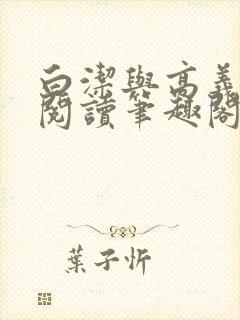 白潔與高義
閱讀筆趣閣
葉子忻